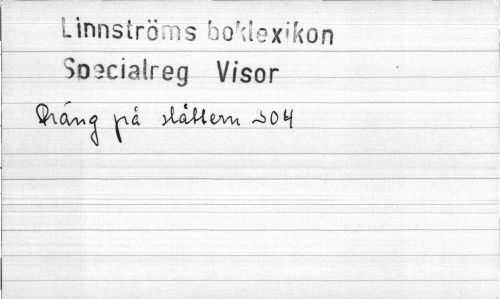 Linnströms boklexikon
Specialreg Visor
Dräng på slåttern 304